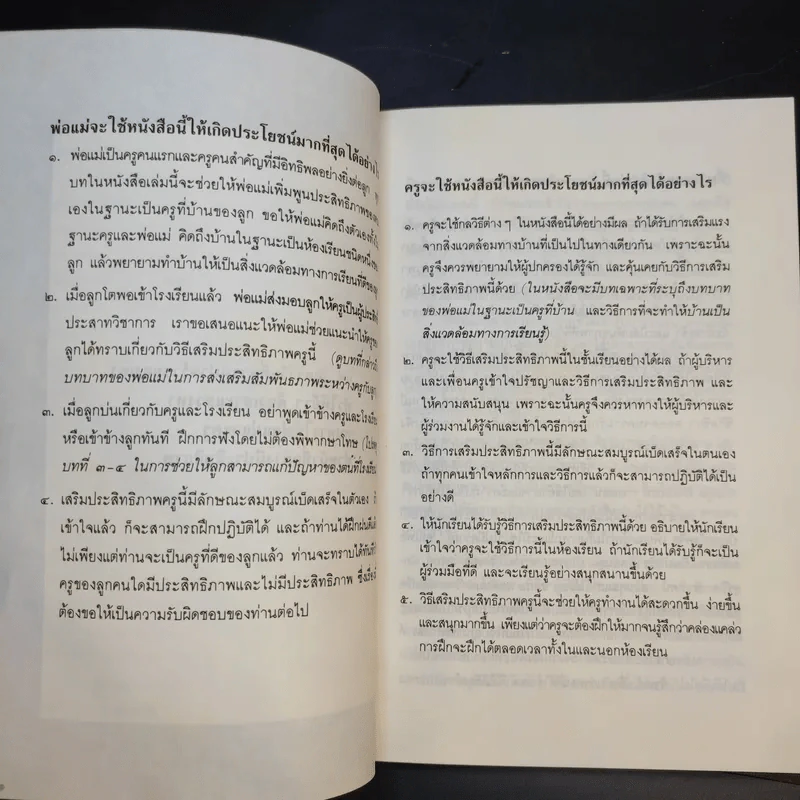 พ่อแม่จะใช้หนังสือนี้ให้เกิดประโยชน์มากที่สุดได้อย่างไร
๑. พ่อแม่เป็นครูคนแรกและครูคนสำคัญที่มีอิทธิพลอย่างยิ่งต่อลูก
บทในหนังสือเล่มนี้จะช่วยให้พ่อแม่เพิ่มพูนประสิทธิภาพของ
เองในฐานะเป็นครูที่บ้านของลูก ขอให้พ่อแม่คิดถึงตัวเอง
ฐานะครูและพ่อแม่ คิดถึงบ้านในฐานะเป็นห้องเรียนชนิดหนึ่ง
ลูก แล้วพยายามทำบ้านให้เป็นสิ่งแวดล้อมทางการเรียนที่ดีของ
๒. เมื่อลูกโตพอเข้าโรงเรียนแล้ว พ่อแม่ส่งมอบลูกให้ครูเป็นผู้
ประสาทวิชาการ เราขอเสนอแนะให้พ่อแม่ช่วยแนะนำให้ครู
ลูกได้ทราบเกี่ยวกับวิธีเสริมประสิทธิภาพครูนี้ (ดูบทที่กล่าวถึง
บทบาทของพ่อแม่ในการส่งเสริมสัมพันธภาพระหว่างครูกับ
๓. เมื่อลูกบ่นเกี่ยวกับครูและโรงเรียน อย่าพูดเข้าข้างครูและโรงเรียน
หรือเข้าข้างลูกทันที ฝึกการฟังโดยไม่ต้องพิพากษาโทษ
บทที่ ๓-๔ ในการช่วยให้ลูกสามารถแก้ปัญหาของตนที่โรงเรียน
๔. เสริมประสิทธิภาพครูนี้มีลักษณะสมบูรณ์เบ็ดเสร็จในตัวเอง
เข้าใจแล้ว ก็จะสามารถฝึกปฏิบัติได้ และถ้าท่านได้ฝึกฝน
ไม่เพียงแต่ท่านจะเป็นครูที่ดีของลูกแล้ว ท่านจะทราบได้ทันที
ครูของลูกคนใดมีประสิทธิภาพและไม่มีประสิทธิภาพ
ต้องขอให้เป็นความรับผิดชอบของท่านต่อไป
ครูจะใช้หนังสือนี้ให้เกิดประโยชน์มากที่สุดได้อย่างไร
๑. ครูจะใช้กลวิธีต่างๆ ในหนังสือนี้ได้อย่างมีผล ถ้าได้รับการเสริมแรง
จากสิ่งแวดล้อมทางบ้านที่เป็นไปในทางเดียวกัน เพราะฉะนั้น
ครูจึงควรพยายามให้ผู้ปกครองได้รู้จัก และคุ้นเคยกับวิธีการเสริม
ประสิทธิภาพนี้ด้วย (ในหนังสือจะมีบทเฉพาะที่ระบุถึงบทบาท
ของพ่อแม่ในฐานะเป็นครูที่บ้าน และวิธีการที่จะทำให้บ้านเป็น
สิ่งแวดล้อมทางการเรียนรู้)
๒. ครูจะใช้วิธีเสริมประสิทธิภาพนี้ในชั้นเรียนอย่างได้ผล ถ้าผู้บริหาร
และเพื่อนครูเข้าใจปรัชญาและวิธีการเสริมประสิทธิภาพ และ
ให้ความสนับสนุน เพราะฉะนั้นครูจึงควรหาทางให้ผู้บริหารและ
ผู้ร่วมงานได้รู้จักและเข้าใจวิธีการนี้
๓. วิธีการเสริมประสิทธิภาพนี้มีลักษณะสมบูรณ์เบ็ดเสร็จในตนเอง
ถ้าทุกคนเข้าใจหลักการและวิธีการแล้วก็จะสามารถปฏิบัติได้เป็น
อย่างดี
๔. ให้นักเรียนได้รับรู้วิธีการเสริมประสิทธิภาพนี้ด้วย อธิบายให้นักเรียน
เข้าใจว่าครูจะใช้วิธีการนี้ในห้องเรียน ถ้านักเรียนได้รับรู้ก็จะเป็น
ผู้ร่วมมือที่ดี และจะเรียนรู้อย่างสนุกสนานขึ้นด้วย
๕. วิธีเสริมประสิทธิภาพครูนี้จะช่วยให้ครูทำงานได้สะดวกขึ้น ง่ายขึ้น
และสนุกมากขึ้น เพียงแต่ว่าครูจะต้องฝึกให้มากจนรู้สึกว่าคล่องแคล่ว
การฝึกจะฝึกได้ตลอดเวลาทั้งในและนอกห้องเรียน